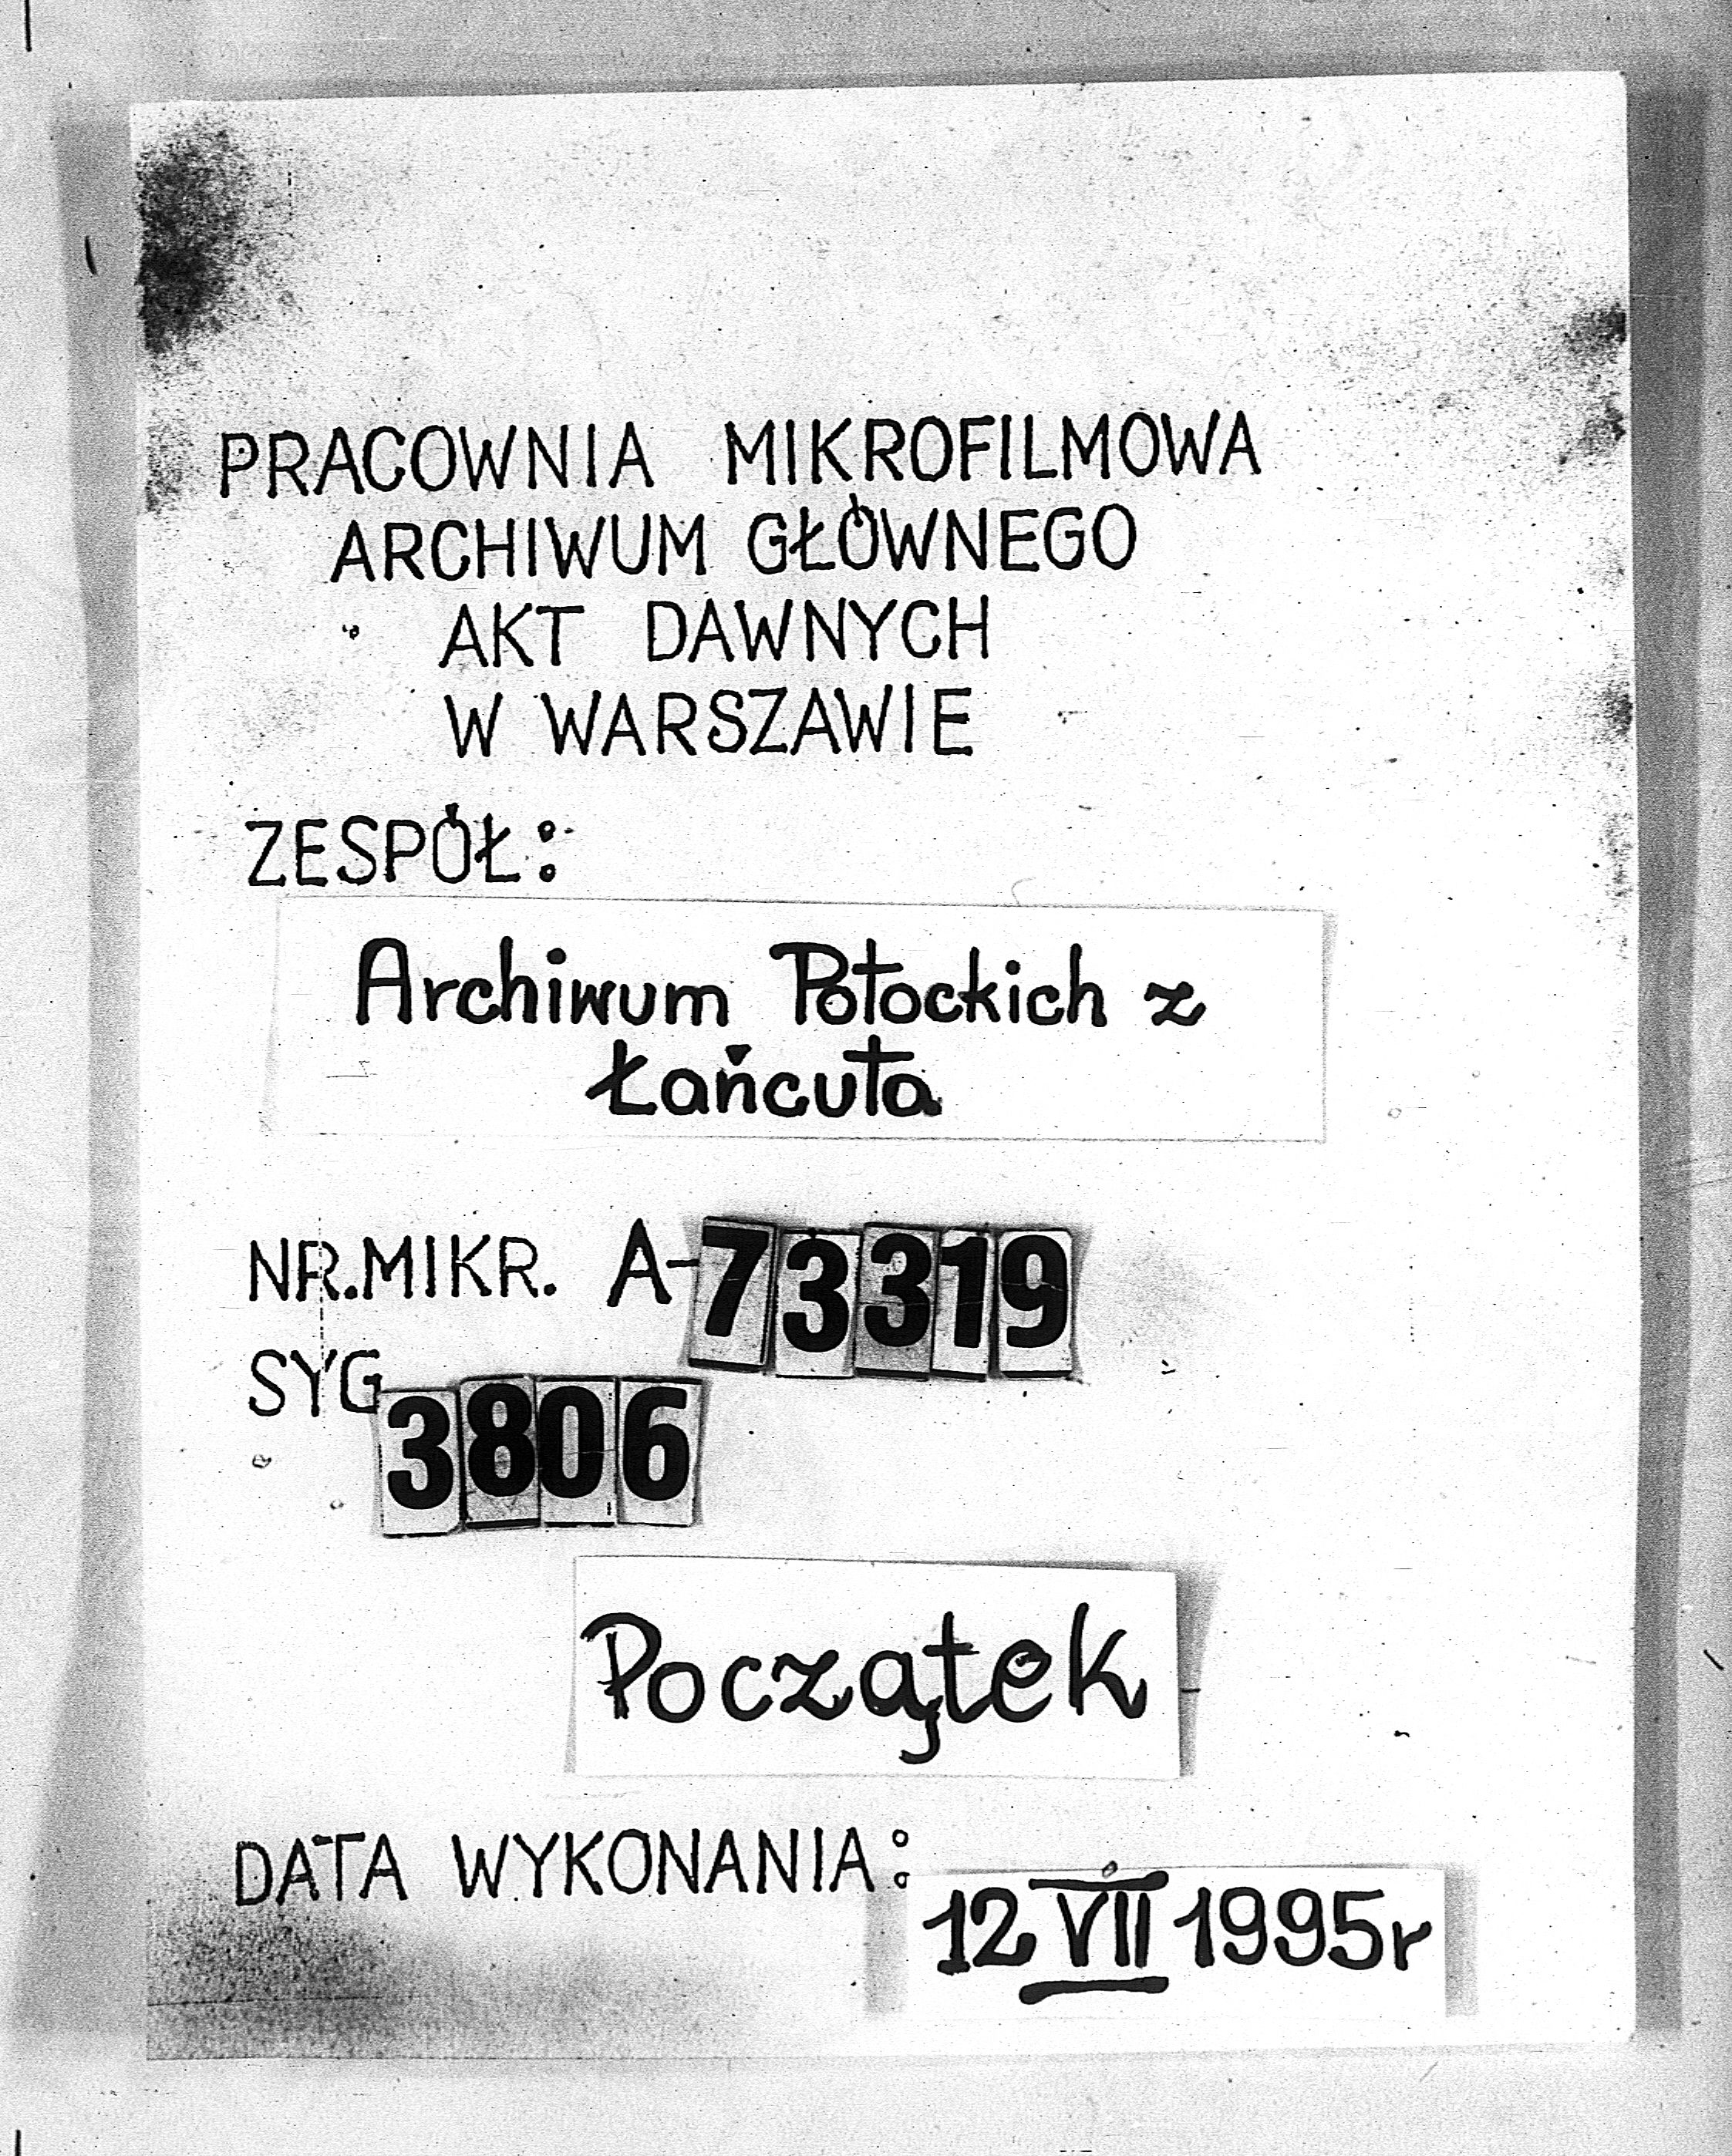 PRACOWNIA MIKROFILMOWA
ARCHIWUM GŁÓWNEGO
AKT DAWNYCH
W WARSZAWIE
ZESPÓŁ:
Archiwum Potockich z
Łańcuta
NR.MIKR. A-73319
SYG 3806
Początek
DATA WYKONANIA: 12 VII 1995r